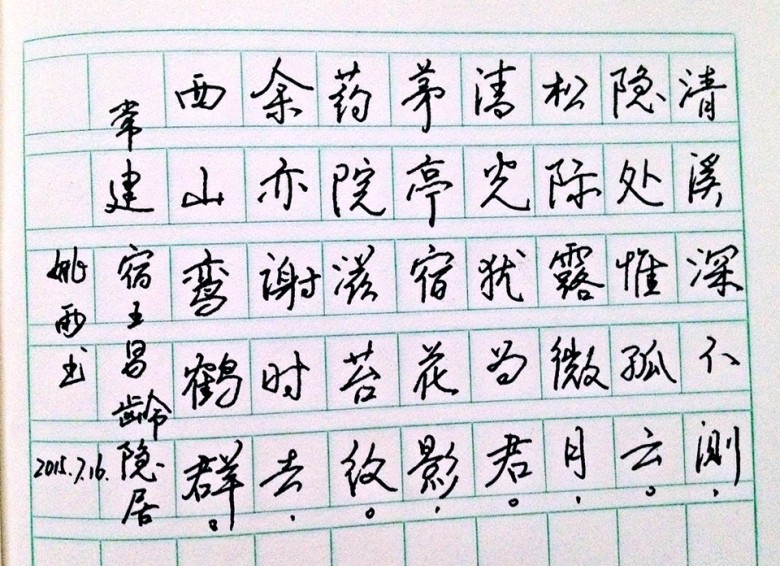 清溪深不测，
隐处惟孤云。
松际露微月，
清光犹为君。
茅亭宿花影，
药院滋苔纹。
余亦谢时去，
西山鸾鹤群。
常建宿王昌龄隐居
姚书 2015.7.16.